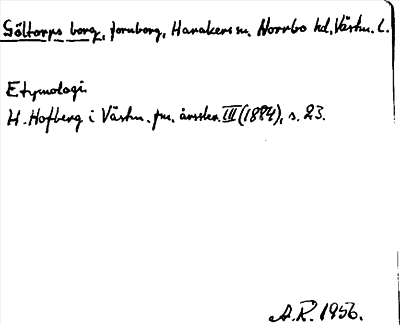 Göltorps borg, fornborg, Harakers sn. Norrbo hd, Västm. l.
Etymologi
H. Hofberg i Västm. fm. årsskr. III (1884), s. 23.
A.R. 1956.